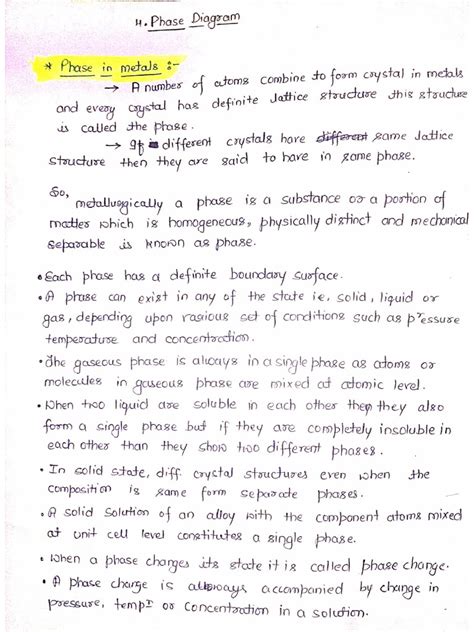 4. Phase Diagram
* Phase in metals :-
→ A number of atoms combine to form crystal in metals
and every crystal has definite lattice structure this structure
is called the phase.
→ If different crystals have different same lattice
structure then they are said to have in same phase.
So,
metallurgically a phase is a substance or a portion of
matter which is homogeneous, physically distinct and mechanical
separable is known as phase.
• Each phase has a definite boundary surface.
• A phase can exist in any of the state i.e. solid, liquid or
gas, depending upon various set of conditions such as pressure
temperature and concentration.
• The gaseous phase is always in a single phase as atoms or
molecules in gaseous phase are mixed at atomic level.
• When two liquid are soluble in each other then they also
form a single phase but if they are completely insoluble in
each other than they show two different phases.
• In solid state, diff. crystal structures even when the
composition is same form separate phases.
• A solid solution of an alloy with the component atoms mixed
at unit cell level constitutes a single phase.
• When a phase changes its state it is called phase change.
• A phase change is always accompanied by change in
pressure, temp. or concentration in a solution.